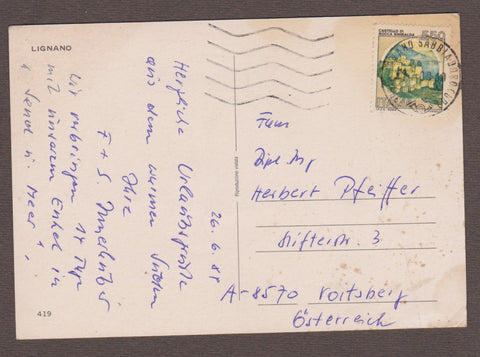 LIGNANO
26. 6. 88
Herzliche Urlaubsgrüße
aus dem warmen Süden
Ihre
F + S.
Wir verbringen 14 Tge
mit unserem Enkel in
Sand u. Meer!
419
Riproduzione vietata
CASTELLO DI
ROCCA SINIBALDA
550
ITALIA
LIGNANO SABBIADORO
Herbert Pfeiffer
Stifterstr. 3
A-8570 Voitsberg
Österreich